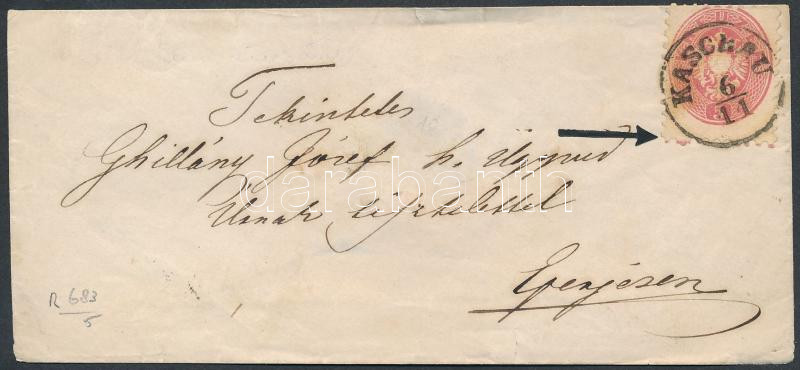 KASCHAU
6
11
Tekintetes
Ghillány József h. ügyvéd
Úrnak tisztelettel
Eperjesen
R 683
5
darabanth